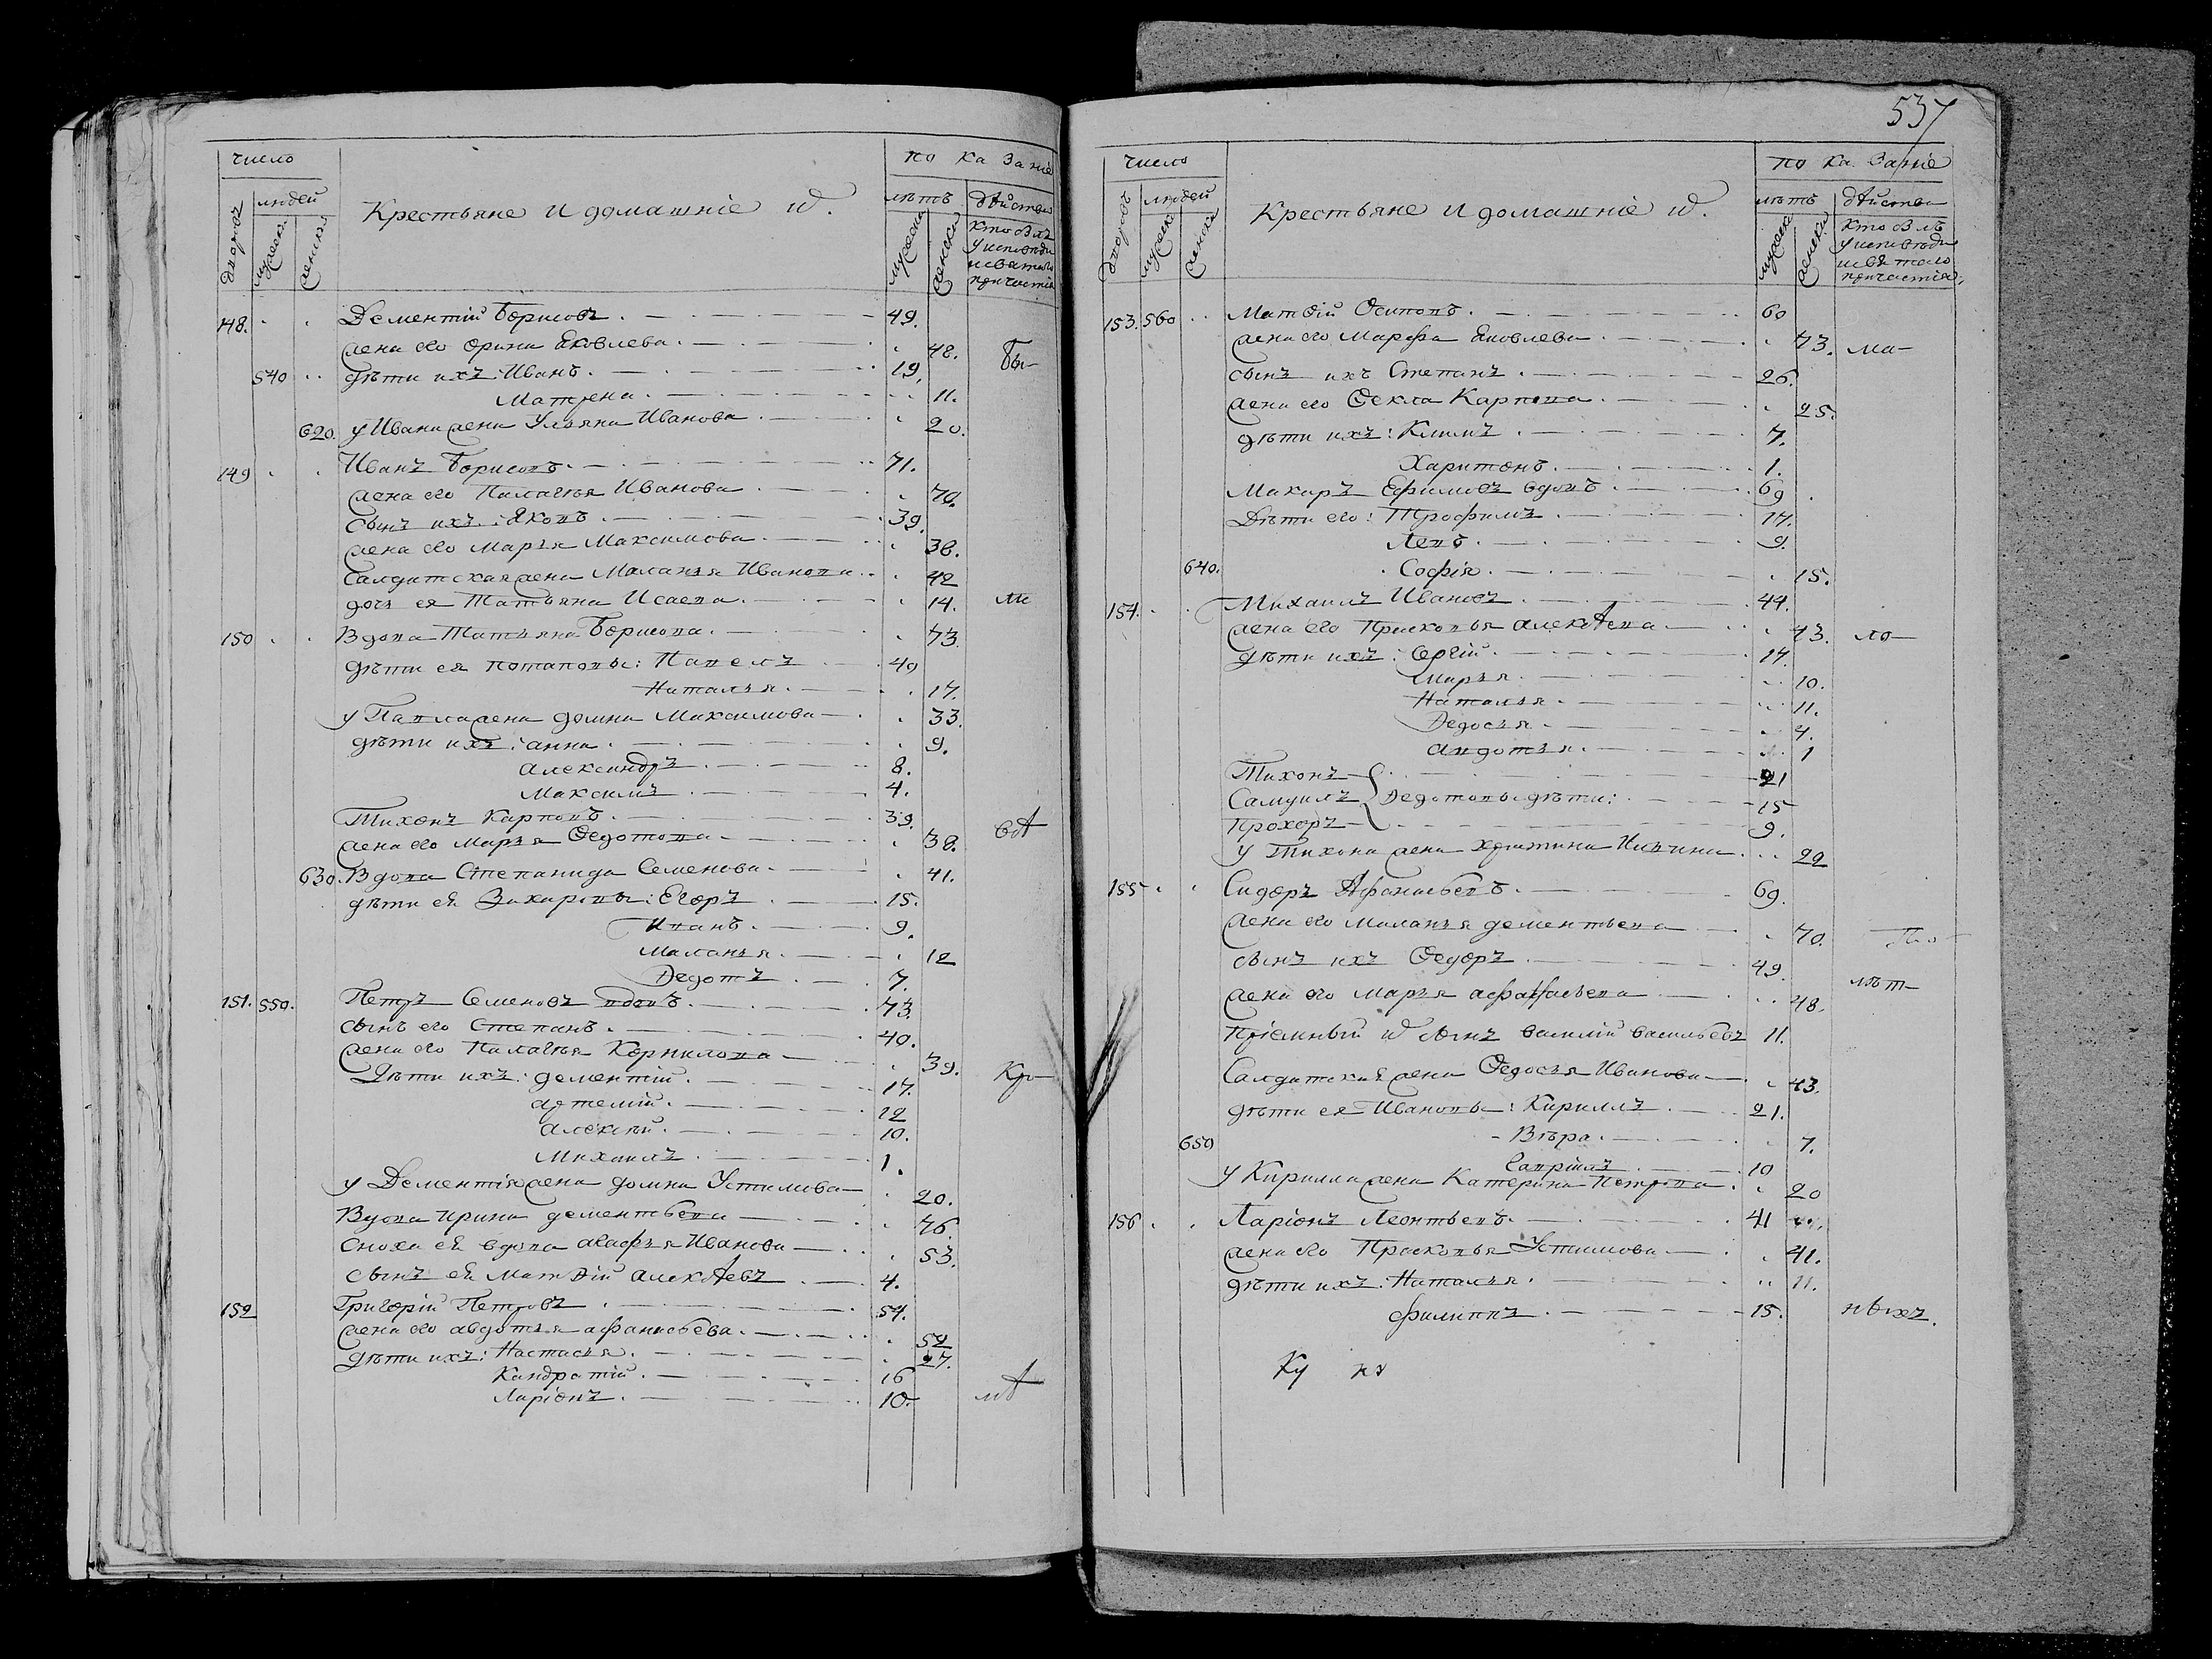 число
по ка за ніе
дворовъ
людей
мужеска
женска
Крестьяне и домашніе ихъ.
лѣтъ
дѣйства
мужеска
женска
кто былъ
у исповѣди
и святаго
причастія
148. Дементій Борисовъ. 49.
жена его Орина Яковлева. 48. бы-
540 дѣти ихъ: Иванъ. 19.
Матрена. 11.
620. у Ивана жена Ульяна Иванова 20.
149 Иванъ Борисовъ. 71.
жена его Палагѣя Иванова 70.
сынъ ихъ: Яковъ. 39.
жена его Марья Максимова 38.
Салдатская жена Маланья Иванова 42
дочь ея Татьяна Исаева. 14. ли
150 Вдова Татьяна Борисова. 73.
дѣти ея Потаповы: Павелъ 40
Наталья. 17.
у Павла жена Домна Максимова 33.
дѣти ихъ: Анна. 9.
Александръ 8.
Максимъ 4.
Тихонъ Карповъ. 39.
жена его Марья Ѳедотова 38. всѣ
630. Вдова Степанида Семенова. 41.
дѣти ея Захаровы: Егоръ 15.
Иванъ. 9.
Маланья. 12
Ѳедотъ 7.
151. 550. Петръ Семеновъ вдовъ. 73.
сынъ его Степанъ. 40.
жена его Палагѣя Корнилова 39. Кр-
Дѣти ихъ: Дементій. 17.
Артемій. 12
Алексѣй. 10.
Михаилъ 1.
у Дементія жена Домна Устимова 20.
Вдова Ирина Дементьева 76.
Сноха ея вдова Агафья Иванова 53.
сынъ ея Матвій Алексѣевъ 4.
152 Григорій Петровъ. 54.
жена его Авдотья Афанасьева. 52
дѣти ихъ: Настасья. 27.
Кандратій. 16
Ларіонъ. 10. мѣ
537
число
по ка заніе
дворовъ
людей
мужеска
женска
Крестьяне и домашніе ихъ.
лѣтъ
дѣйства
мужеска
женска
кто былъ
у исповѣди
и святаго
причастія.
153. 560 Матвій Осиповъ. 60
жена его Марфа Яковлева 73. ма-
сынъ ихъ Степанъ. 26.
жена его Ѳекла Карпова 25.
дѣти ихъ: Климъ 7.
Харитонъ. 1.
Макаръ Ефимовъ вдовъ 69
Дѣти его: Трофимъ 17.
Левъ. 9.
640. Софія. 15.
154. Михаилъ Ивановъ 44.
жена его Прасковья Алексѣева 43. ло-
дѣти ихъ: Сергій. 14.
Марья 10.
Наталья 11.
Ѳедосья 4.
Авдотья 1
Тихонъ 21
Самуилъ } Ѳедотовы дѣти: 15
Прохоръ 9.
У Тихона жена Христина 22
155 Сидоръ Афанасьевъ. 69.
жена его Маланья Дементьева 70.
сынъ ихъ Ѳедоръ 49.
жена его Марья Афанасьева 48. лѣт-
Пріемный ихъ сынъ Василій Васильевъ 11.
Салдатская жена Ѳедосья Иванова 43.
дѣти ея Ивановы: Кириллъ 21.
650 Вѣра. 7.
Гаврилъ 10
У Кирилла жена Катерина Петрова. 20
156 Ларіонъ Леонтьевъ. 41
жена его Прасковья Устимова 41.
дѣти ихъ: Наталья. 11.
Филиппъ 15. нѣихъ.
Ку